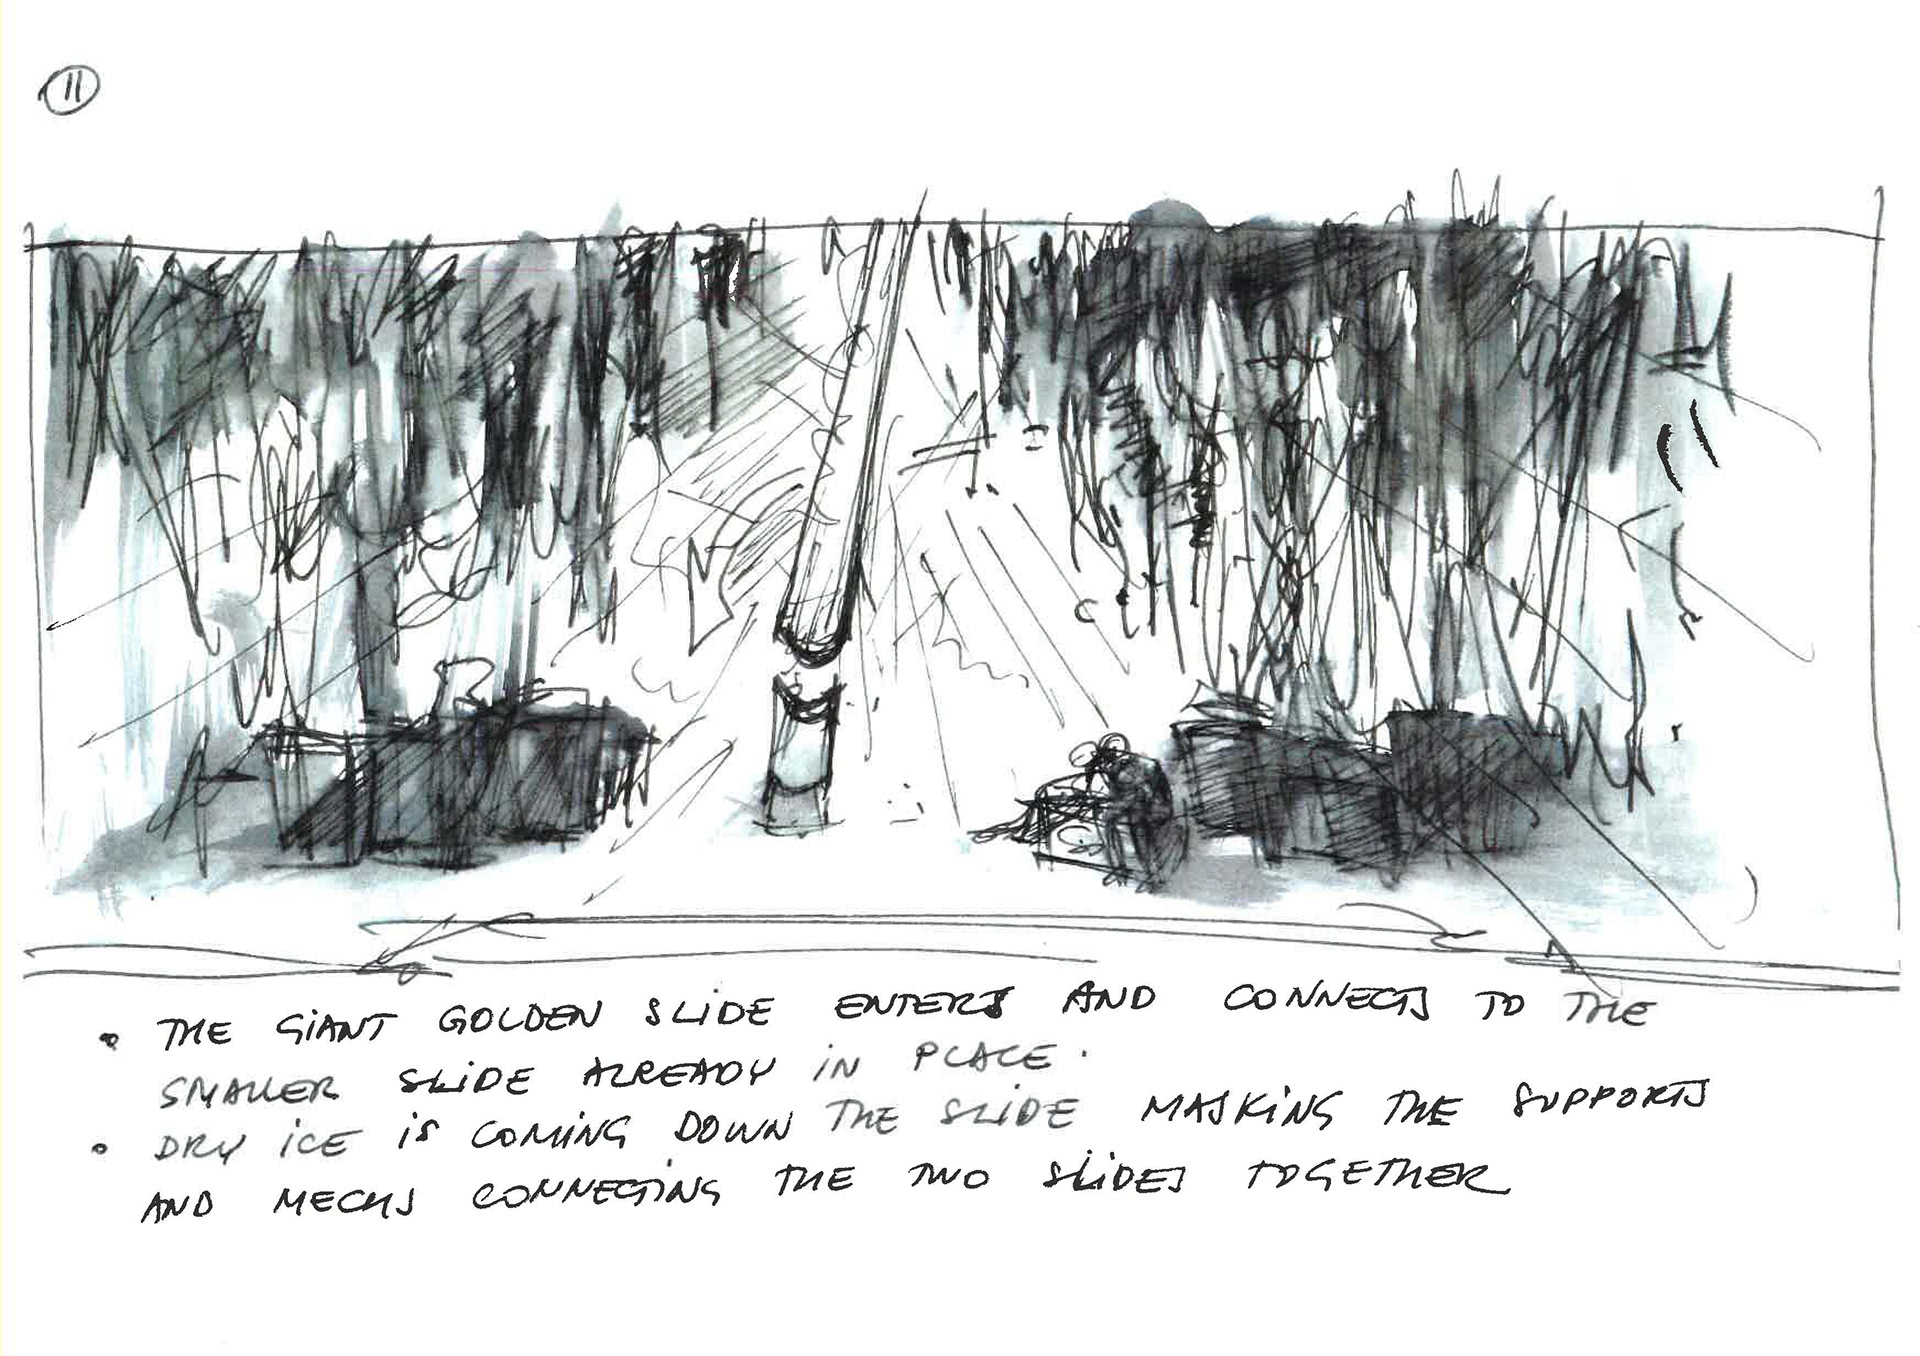 11
• THE GIANT GOLDEN SLIDE ENTERS AND CONNECTS TO THE
SMALLER SLIDE ALREADY IN PLACE.
• DRY ICE IS COMING DOWN THE SLIDE MASKING THE SUPPORTS
AND MECHS CONNECTING THE TWO SLIDES TOGETHER